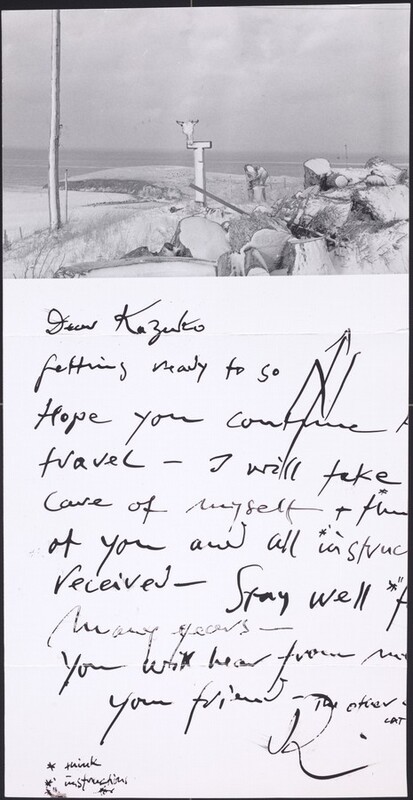 Dear Kazuko
getting ready to go N
Hope you continue
travel — I will take
care of myself + *thin
of you and all *instruc
received — Stay well *f
Many years —
You will hear from me
your friend — The other
CAT
* think
* instructions
* for